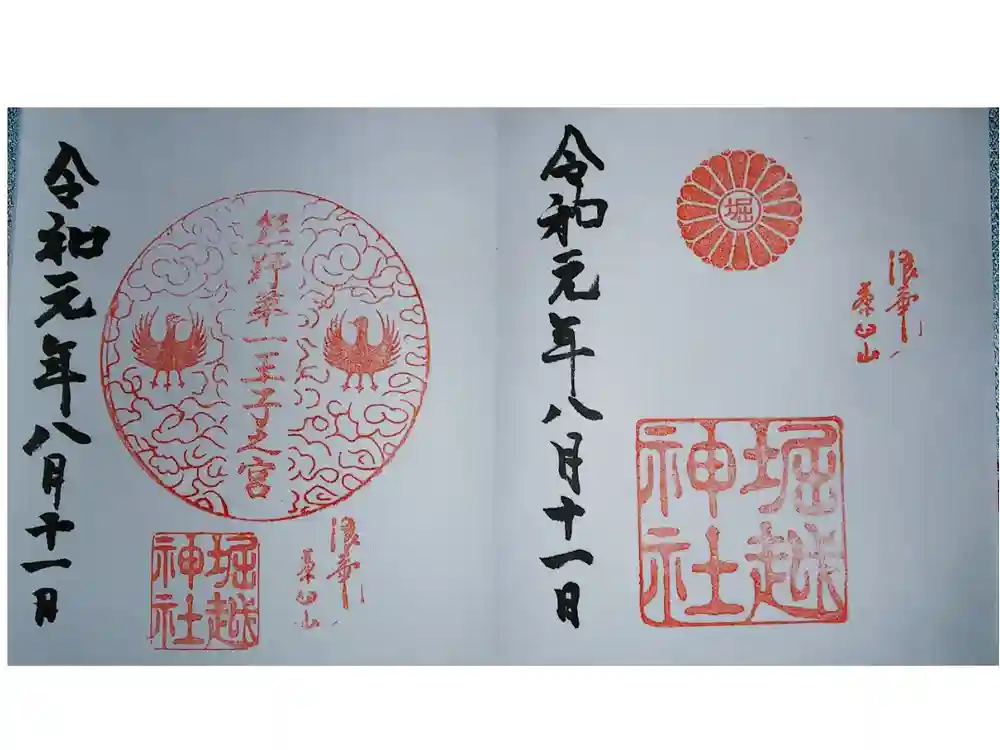 令和元年八月十一日
堀
浪華
茶臼山
堀越
神社
熊野第一王子之宮
浪華
茶臼山
堀越
神社
令和元年八月十一日